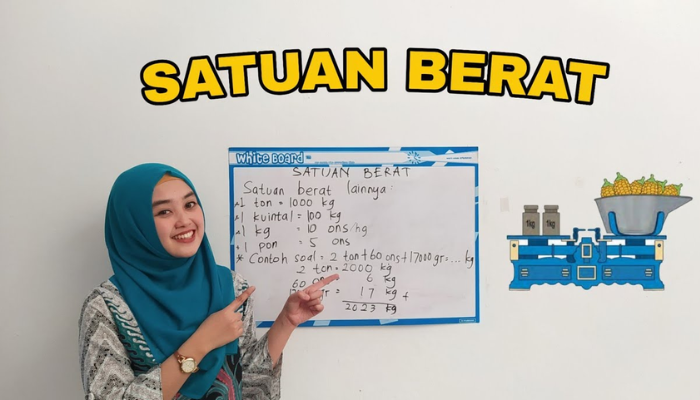 SATUAN BERAT
White Board
SATUAN BERAT
Satuan berat lainnya:
1 ton = 1000 kg
1 kuintal = 100 kg
1 kg = 10 ons/hg
1 pon = 5 ons
* Contoh soal = 2 ton + 60 ons + 17000 gr = ... kg
2 ton = 2000 kg
60 6 kg
gr = 17 kg +
2023 kg
1kg 1kg